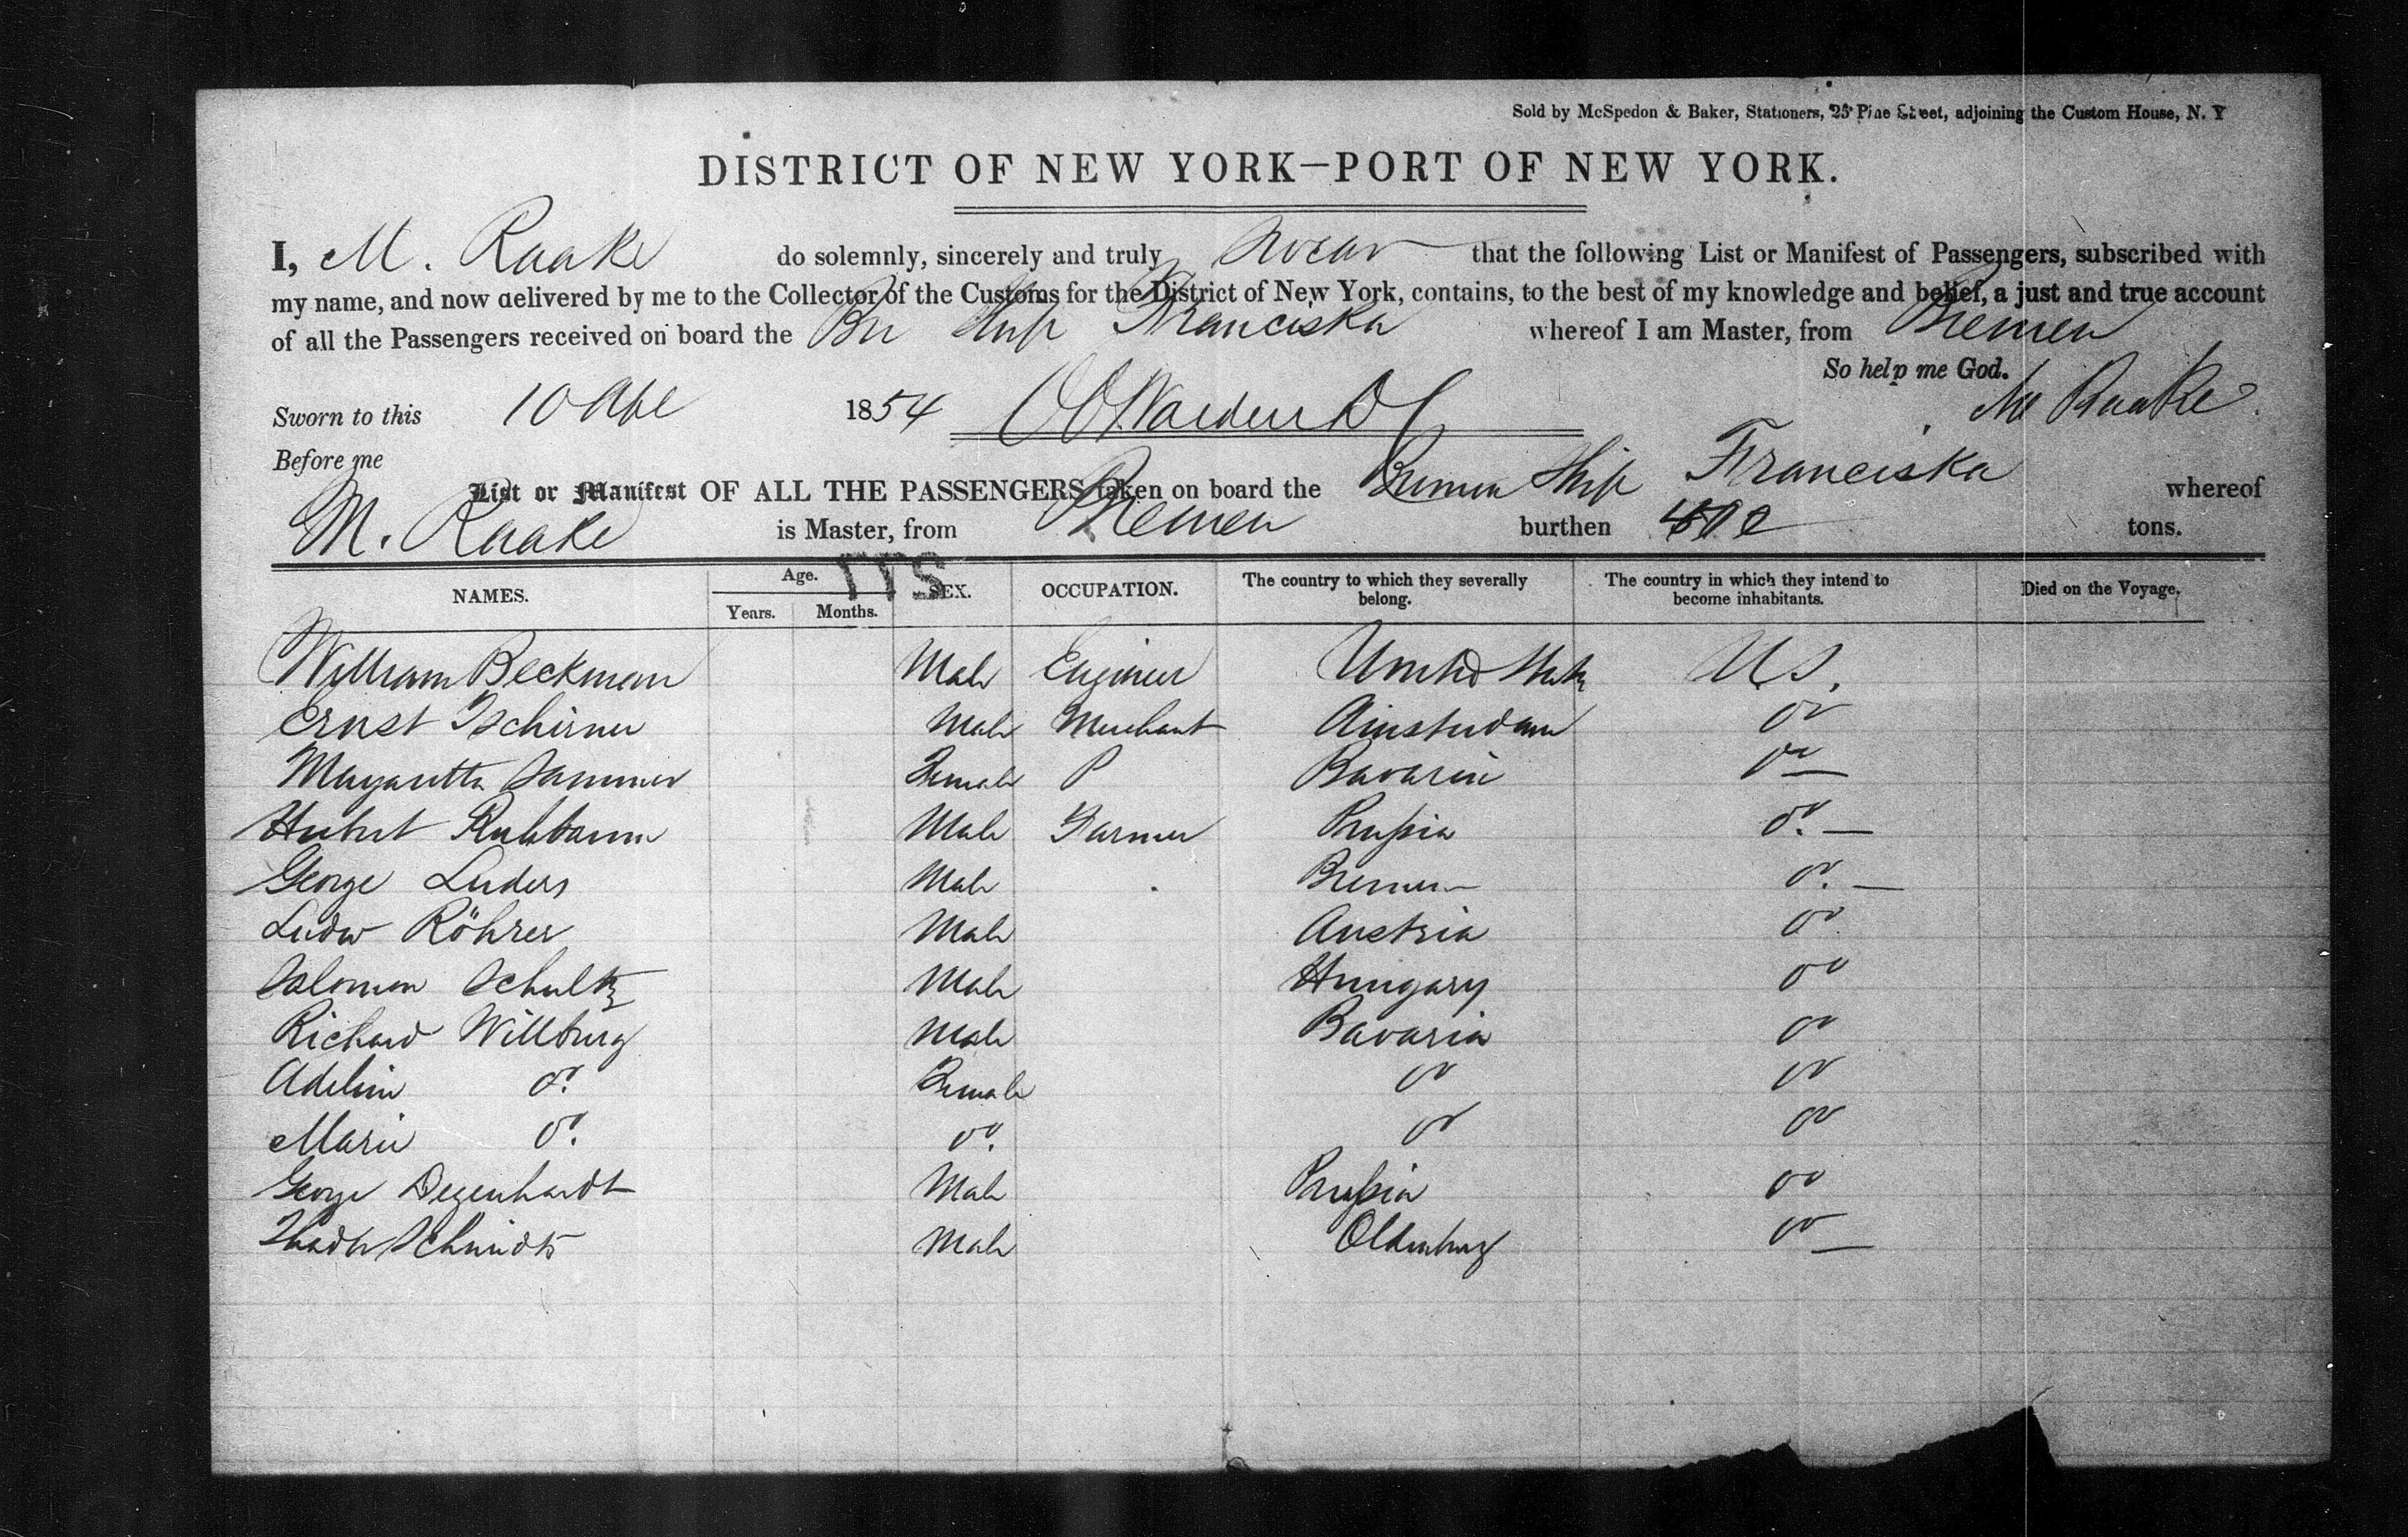 Sold by McSpedon & Baker, Stationers, 25 Pine Street, adjoining the Custom House, N. Y
DISTRICT OF NEW YORK—PORT OF NEW YORK.
I, M. Raake do solemnly, sincerely and truly swear that the following List or Manifest of Passengers, subscribed with
my name, and now delivered by me to the Collector of the Customs for the District of New York, contains, to the best of my knowledge and belief, a just and true account
of all the Passengers received on board the Br Ship Franciska whereof I am Master, from Bremen
So help me God.
Sworn to this 10 Apl 1854 M Raake
Before me
List or Manifest OF ALL THE PASSENGERS taken on board the Bremen Ship Franciska whereof
M. Raake is Master, from Bremen burthen tons.
NAMES. Age. Years. Months. SEX. OCCUPATION. The country to which they severally belong. The country in which they intend to become inhabitants. Died on the Voyage.
William Beckman Male Engineer United States U.S.
Ernst Tschirner Male Merchant Amsterdam do
Margaretta Sammer Female Bavaria do
Hubert Ruhbaum Male Farmer Prussia do
George Luders Male Bremen do
Ludw Röhrer Male Austria do
Salomon Schultz Male Hungary do
Richard Willburg Male Bavaria do
Adeline do Female do do
Marie do do do do
George Degenhardt Male Prussia do
Schmidt Male Oldenburg do